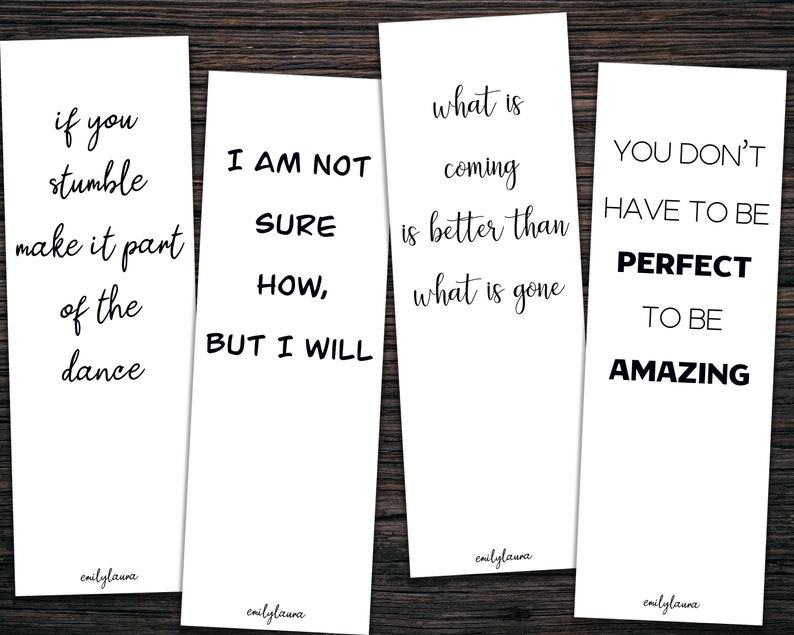 if you
stumble
make it part
of the
dance
emilylaura
I AM NOT
SURE
HOW,
BUT I WILL
emilylaura
what is
coming
is better than
what is gone
emilylaura
YOU DON'T
HAVE TO BE
PERFECT
TO BE
AMAZING
emilylaura